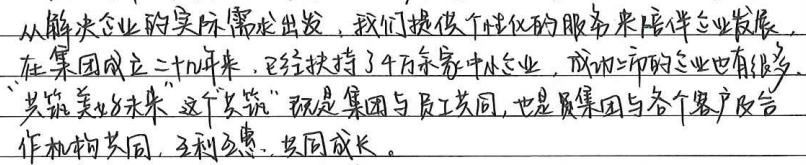 从解决企业的实际需求出发，我们提供个性化的服务来陪伴企业发展，
在集团成立二十九年来，已经扶持了4万余家中小企业，成功上市的企业也有很多。
“共筑美好未来”这个“共筑”既是集团与员工共同，也是集团与各个客户及合
作机构共同，互利互惠、共同成长。